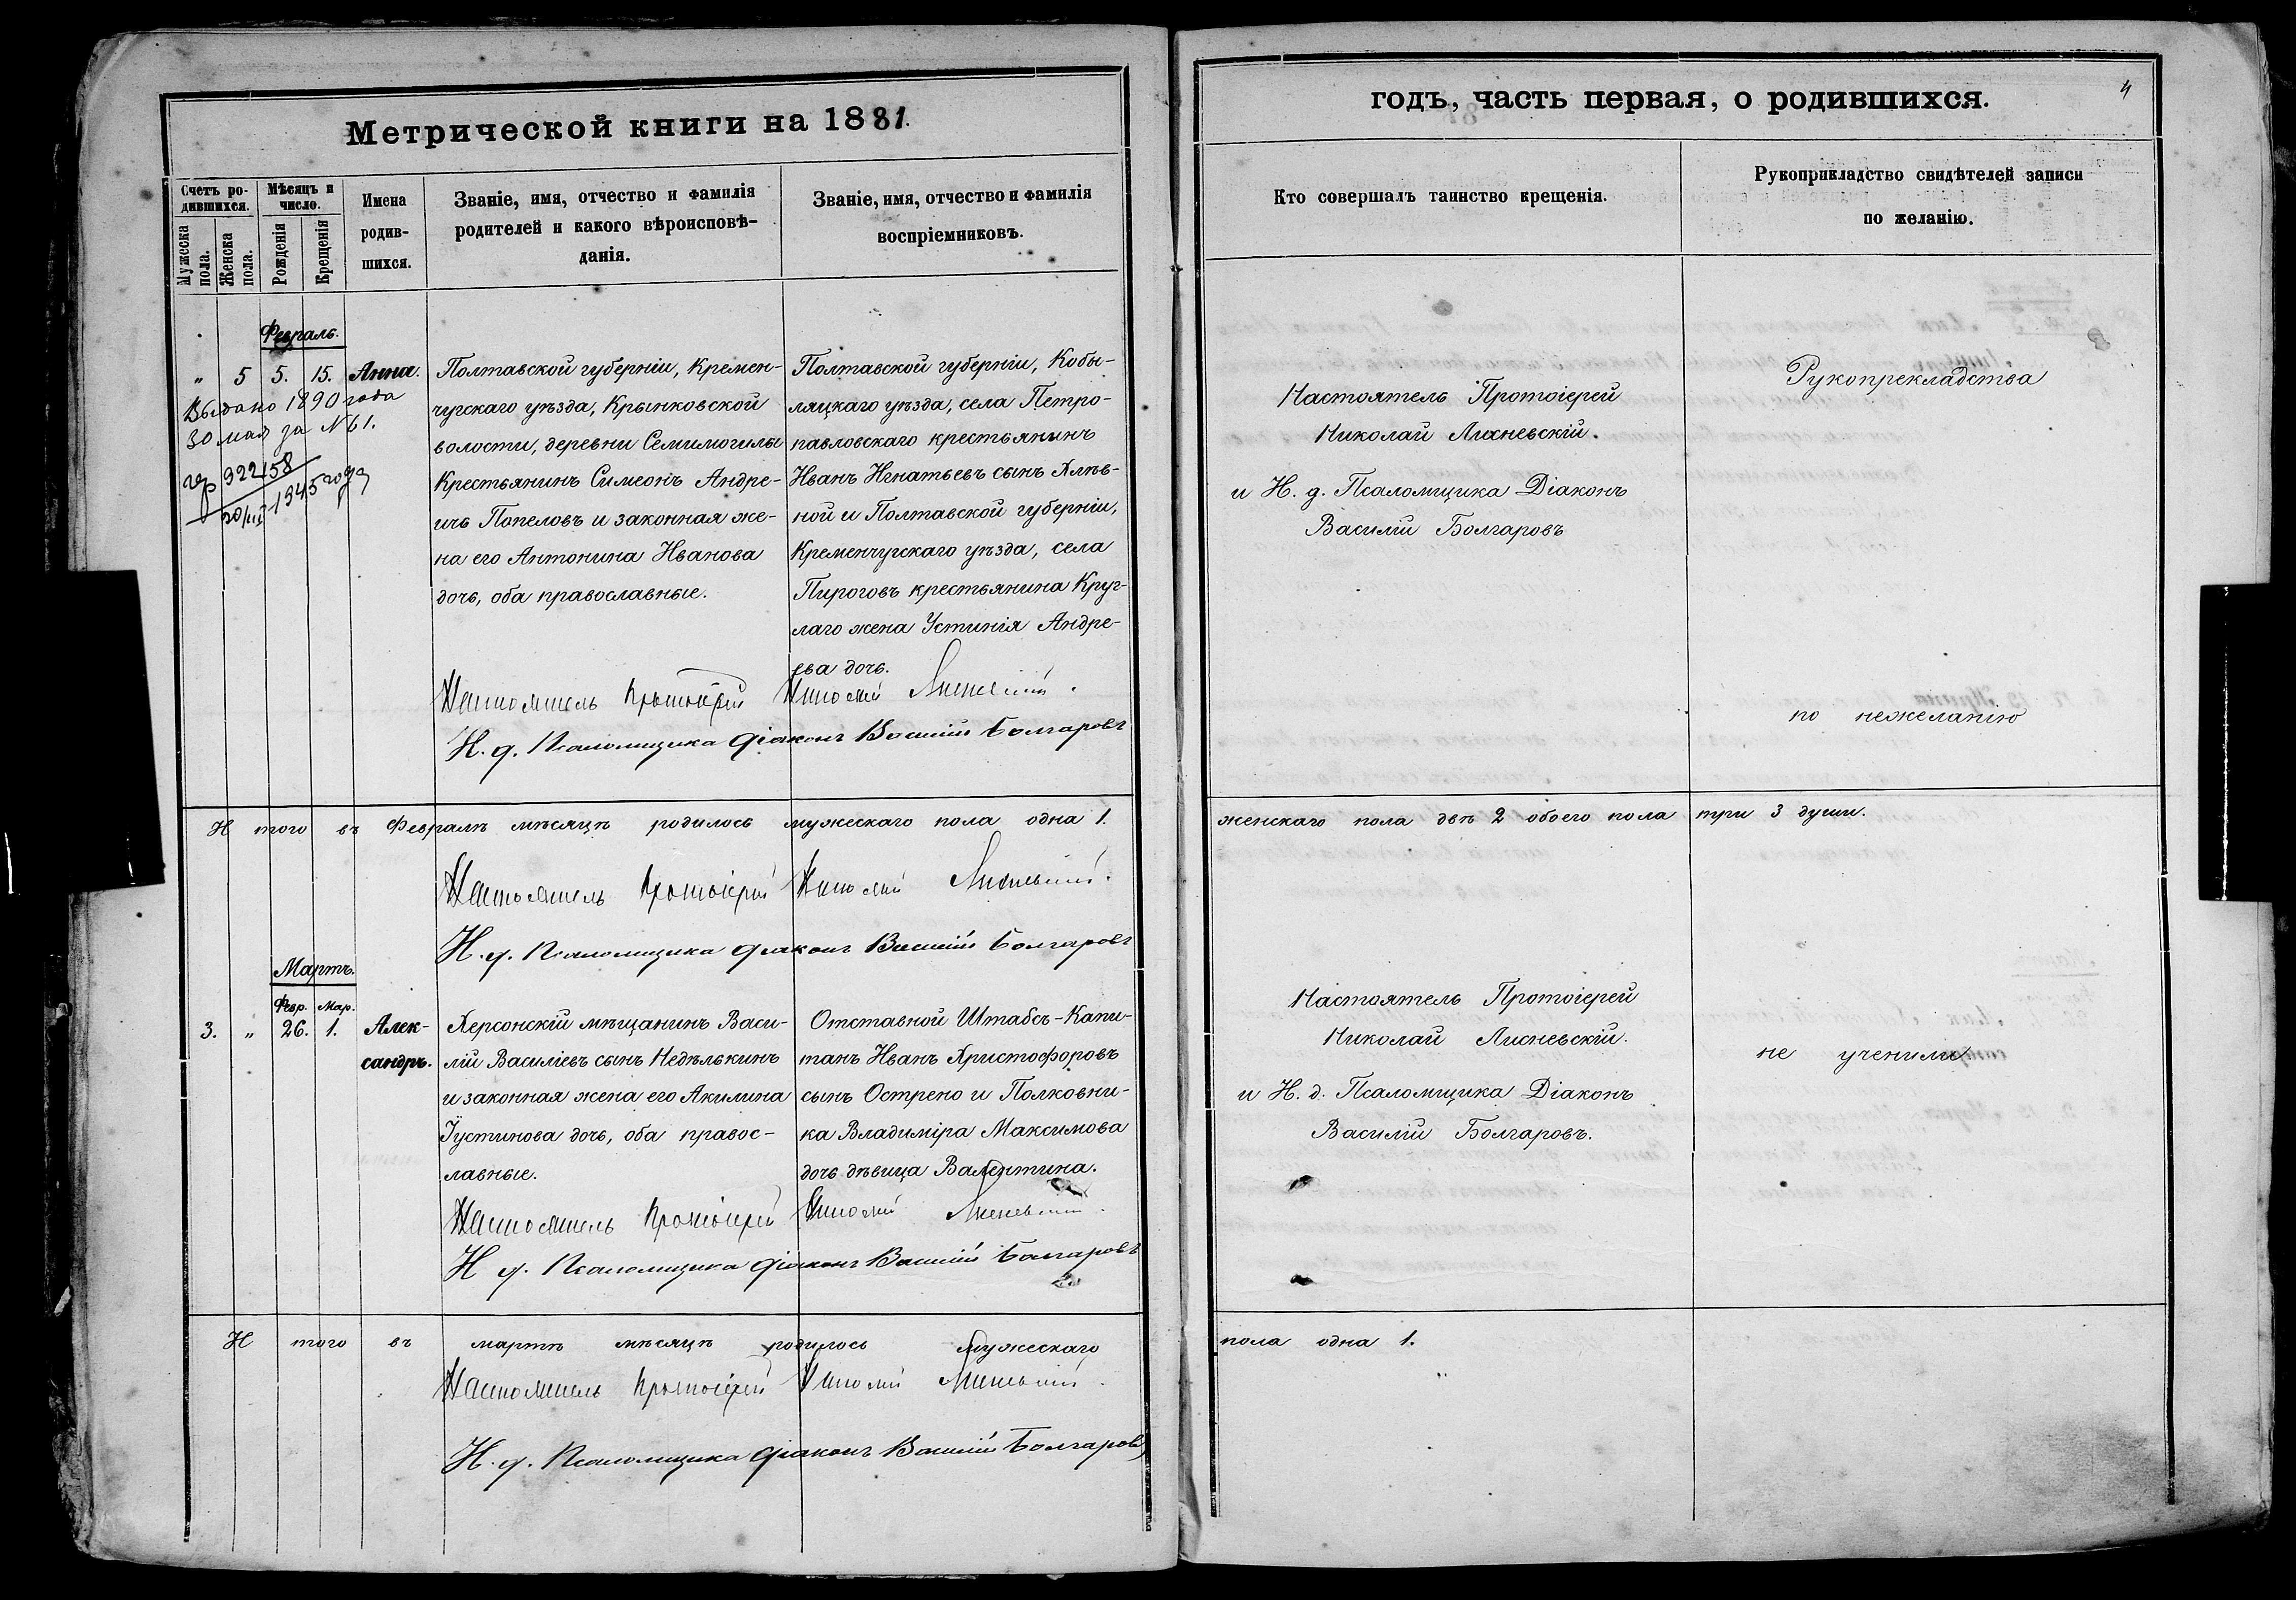 Метрической книги на 1881.
Счетъ ро-
дившихся.
Мужеска пола.
Женска пола.
Мѣсяцъ и
число.
Рожденія
Крещенія
Имена
родив-
шихся.
Званіе, имя, отчество и фамилія
родителей и какого вѣроисповѣ-
данія.
Званіе, имя, отчество и фамилія
воспріемниковъ.
Февраль.
„ 5 5. 15. Анна.
Выдано 1890 года
30 мая за № 61.
922158
20/III 1945 года
Полтавской губерніи, Кремен-
чугскаго уѣзда, Крынковской
волости, деревни Семимогилы
Крестьянинъ Симеонъ Андре-
ичъ Попеловъ и законная же-
на его Антонина Иванова
дочь, оба православные.
Полтавской губерніи, Кобы-
ляцкаго уѣзда, села Петро-
павловскаго крестьянинъ
Иванъ Игнатьевъ сынъ Хлѣв-
ной и Полтавской губерніи,
Кременчугскаго уѣзда, села
Пироговъ крестьянина Круг-
лаго жена Устинія Андре-
ева дочь.
Настоятель Протоіерей Николай Лисневскій.
И. д. Псаломщика Діаконъ Василій Болгаровъ
И того въ Февралѣ мѣсяцѣ родилось мужескаго пола одна 1.
Настоятель Протоіерей Николай Лисневскій.
И. д. Псаломщика Діаконъ Василій Болгаровъ
Мартъ.
Февр. Мар.
3. „ 26. 1. Алек-
сандръ.
Херсонскій мѣщанинъ Васи-
лій Василіевъ сынъ Недѣлькинъ
и законная жена его Акилина
Іустинова дочь, оба правос-
лавные.
Отставной Штабсъ-Капи-
танъ Иванъ Христофоровъ
сынъ Острено и Полковни-
ка Владиміра Максимова
дочь дѣвица Валентина.
Настоятель Протоіерей Николай Лисневскій.
И д. Псаломщика Діаконъ Василій Болгаровъ
И того въ мартѣ мѣсяцѣ родилось мужескаго
Настоятель Протоіерей Николай Лисневскій.
И. д. Псаломщика Діаконъ Василій Болгаровъ
годъ, часть первая, о родившихся.
4
Кто совершалъ таинство крещенія.
Рукоприкладство свидѣтелей записи
по желанію.
Настоятель Протоіерей
Николай Лисневскій.
и И. д. Псаломщика Діаконъ
Василій Болгаровъ
Рукопрекладства
по нежеланію
женскаго пола двѣ 2 обоего пола три 3 души.
Настоятель Протоіерей
Николай Лисневскій.
и И. д. Псаломщика Діаконъ
Василій Болгаровъ.
не ученили
пола одна 1.